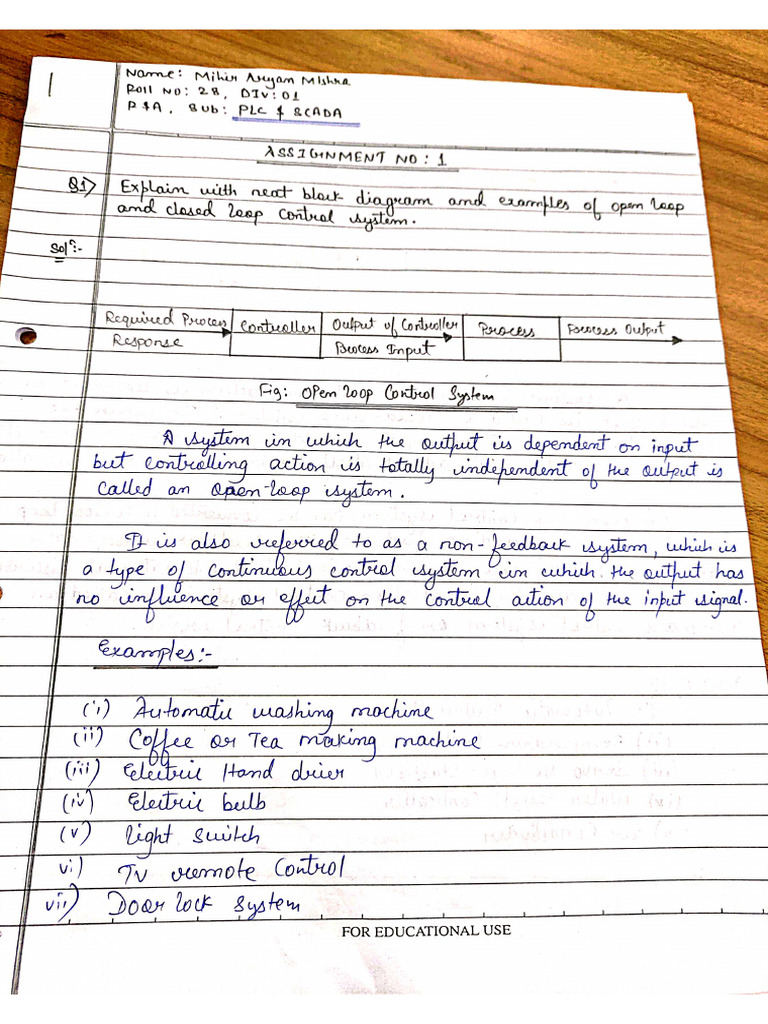 1
Name: Mihir Aryan Mishra
Roll No: 28, DIV: 01
R&A, Sub: PLC & SCADA
ASSIGNMENT NO: 1
Q1) Explain with neat block diagram and examples of open loop
and closed loop control system.
Solⁿ:-
Required Process Controller Output of Controller Process Process Output
Response Process Input
Fig: Open loop Control System
A system in which the output is dependent on input
but controlling action is totally independent of the output is
called an open-loop system.
It is also referred to as a non-feedback system, which is
a type of continuous control system in which the output has
no influence or effect on the control action of the input signal.
Examples:-
(i) Automatic washing machine
(ii) Coffee or Tea making machine
(iii) Electric Hand drier
(iv) Electric bulb
(v) Light switch
vi) TV remote control
vii) Door lock system
FOR EDUCATIONAL USE